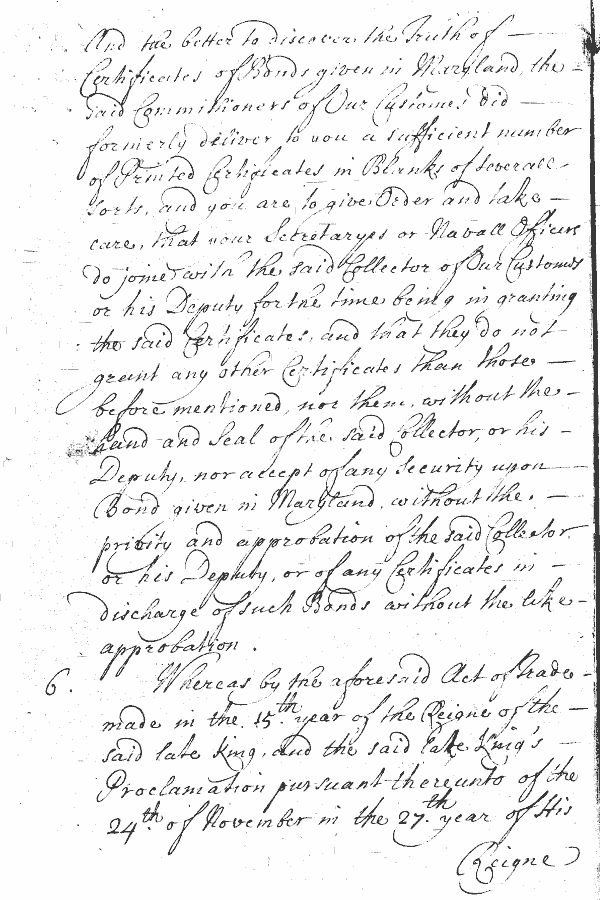 And the better to discover the Truth of —
Certificates of Bonds given in Maryland, the -
said Commissioners of Our Customes did —
formerly deliver to you a sufficient number
of Printed Certificates in Blanks of severall -
sorts, and you are to give Order and take —
care, that your Secretaryes or Navall Officers
do joine with the said Collector of Our Customes
or his Deputy for the time being in granting
the said Certificates, and that they do not —
grant any other Certificates than those —
before mentioned, nor them, without the —
hand and Seal of the said Collector, or his —
Deputy, nor accept of any Security upon —
Bond given in Maryland, without the —
privity and approbation of the said Collector
or his Deputy, or of any Certificates in —
discharge of such Bonds without the like -
approbation.
6. Whereas by the aforesaid Act of Trade -
made in the 15th year of the Reigne of the —
said late King, and the said late King's —
Proclamation pursuant thereunto of the
24th of November in the 27th year of His
Reigne